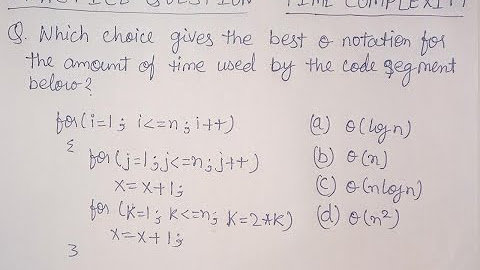 PRACTICE QUESTION TIME COMPLEXITY
Q. Which choice gives the best θ notation for
the amount of time used by the code segment
below?
for(i=1; i<=n; i++)
{
for(j=1; j<=n; j++)
x=x+1;
for (k=1; k<=n; k=2*k)
x=x+1;
}
(a) θ(logn)
(b) θ(n)
(c) θ(nlogn)
(d) θ(n²)